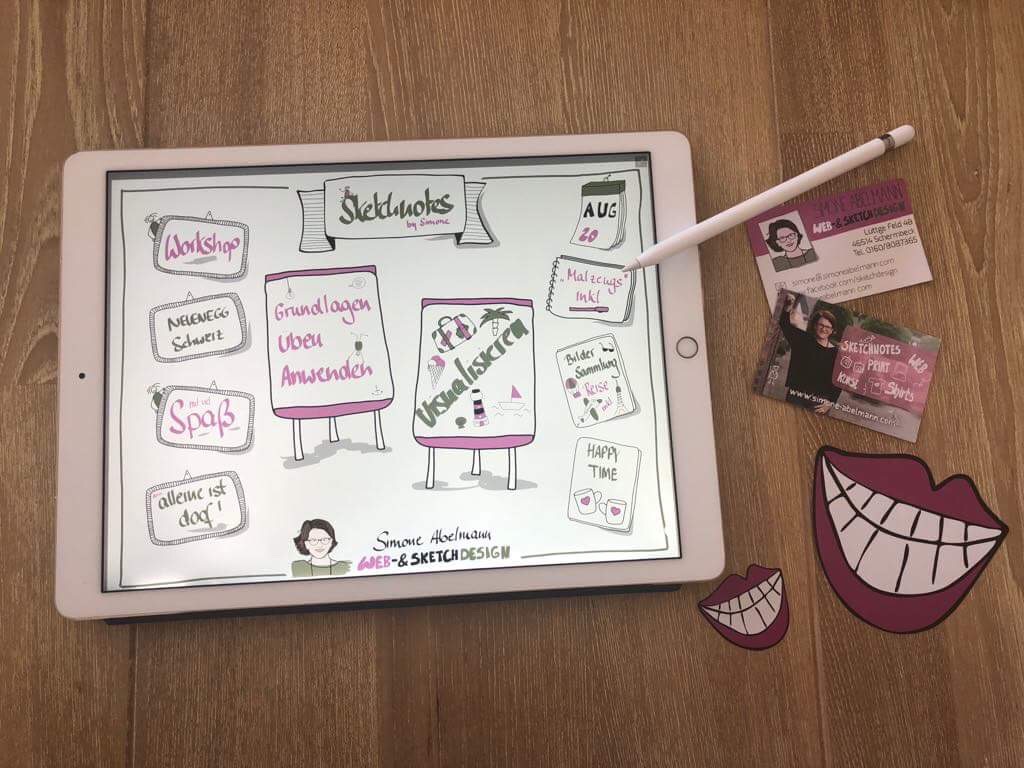 Sketchnotes
by Simone
Workshop
NEUENEGG
Schweiz
mit viel
Spaß
alleine ist
doof!
Grundlagen
Üben
Anwenden
Visualisieren
AUG
20
"Malzeugs"
inkl
Bilder
Sammlung
Reise
inkl
HAPPY
TIME
Simone Abelmann
WEB-& SKETCHDESIGN
SIMONE ABELMANN
WEB-& SKETCHDESIGN
Lüttge Feld 48
46514 Schermbeck
Tel. 0160/8087365
simone@simoneabelmann.com
facebook.com/sketchdesign
abelmann.com
SKETCHNOTES
WEB
PRINT
KURSE
Shirts
www.simone-abelmann.com